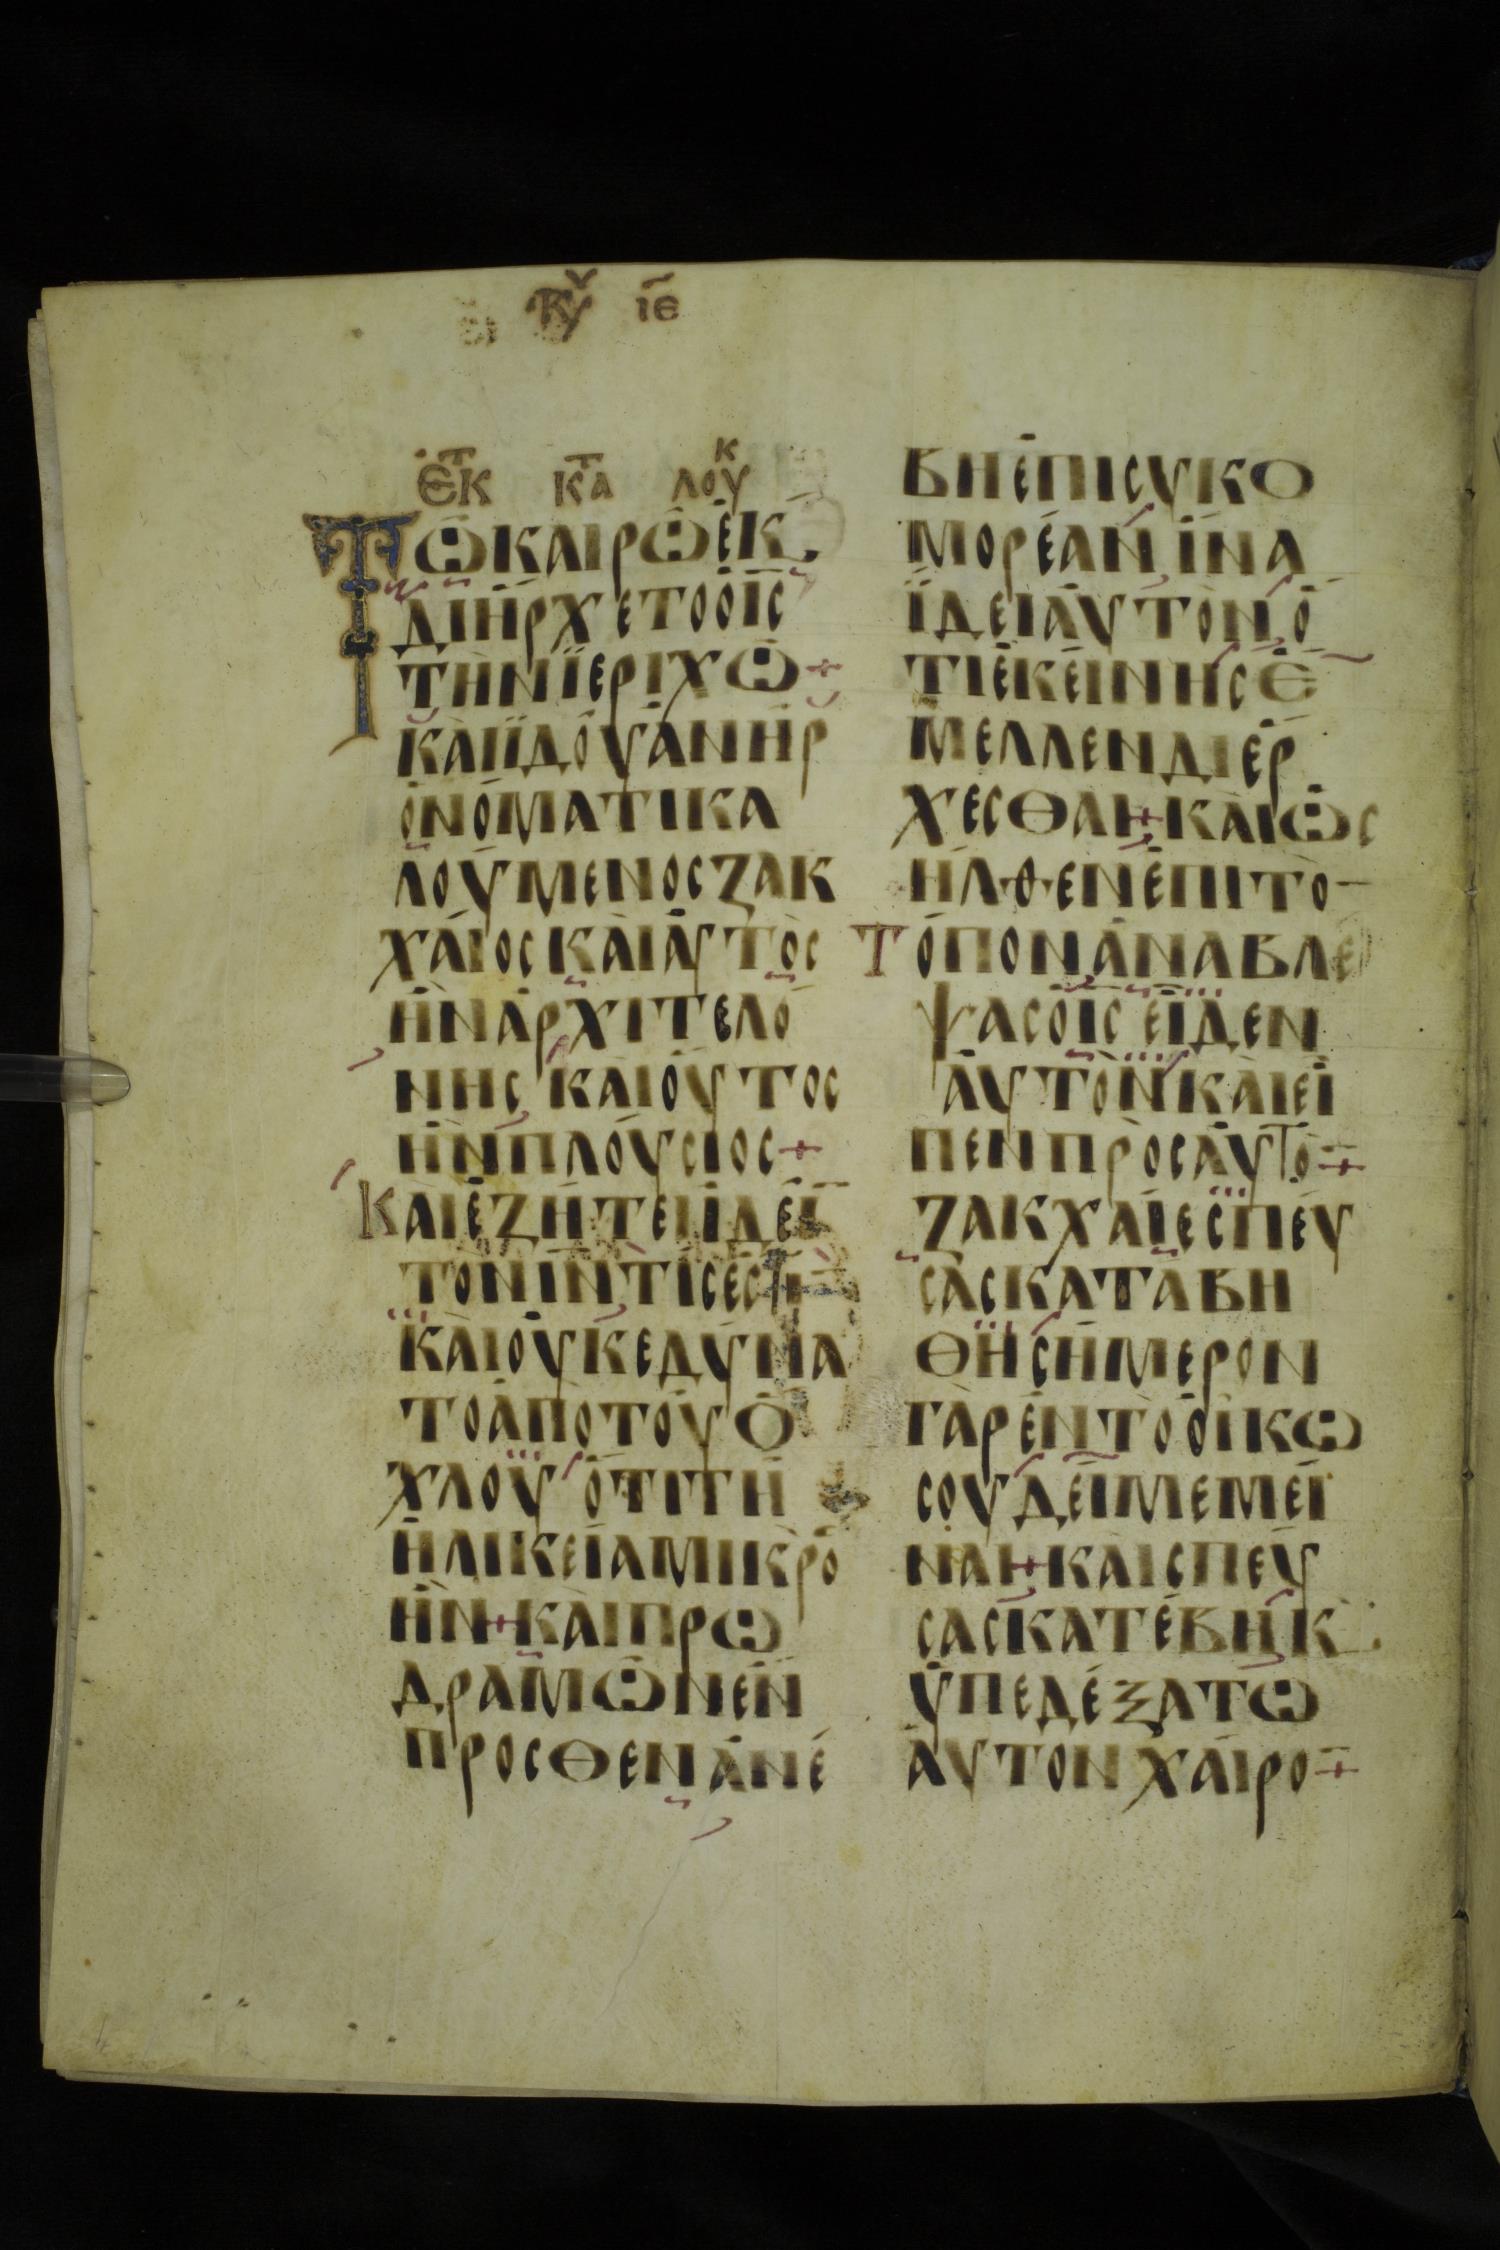 Κυ ιε
Εκ κτα λου κ
Τω καιρω εκ
διηρχετο ο ις
την ιεριχω +
και ιδου ανηρ
ονοματι κα
λουμενος ζακ
χαιος και αυτος
ην αρχιτελο
νης και ουτος
ην πλουσιος +
Και εζητει ιδει
τον ιν τις εστι
και ουκ εδυνα
το απο του ο
χλου οτι τη
ηλικεια μικρο
ην + και πρω
δραμων εν
προσθεν ανε
βη επι συκο
μορεαν ινα
ιδει αυτον ο
τι εκεινης ε
μελλεν διερ
χεσθαι + και ως
ηλθεν επι το
Τοπον αναβλε
ψας ο ις ειδεν
αυτον και ει
πεν προς αυτο +
ζακχαιε σπευ
σας καταβη
θη σημερον
γαρ εν το οικω
σου δει με μει
ναι + και σπευ
σας κατεβη κ
υπεδεξατω
αυτον χαιρο +